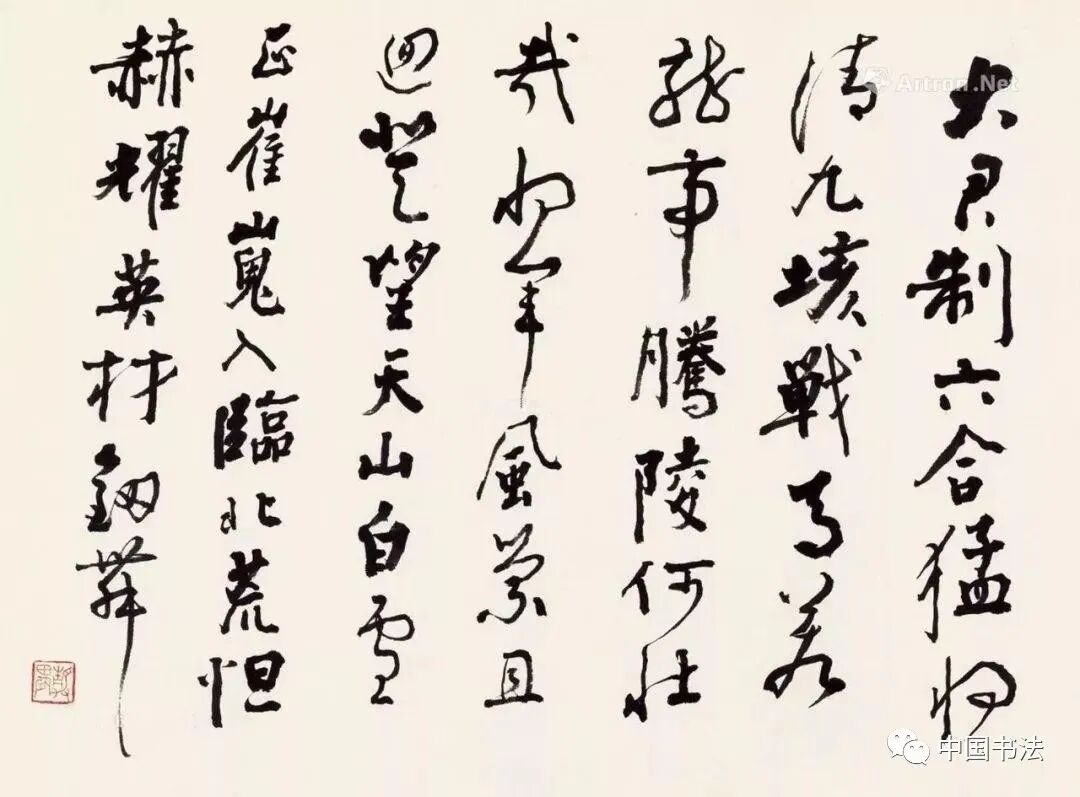 大君制六合猛將
清九垓戰馬若
龍事騰陵何壯
哉將軍風縈且
迴登望天山白雪
正崔嵬入臨北荒怛
赫耀英材釼舞
Artron.Net
中国书法